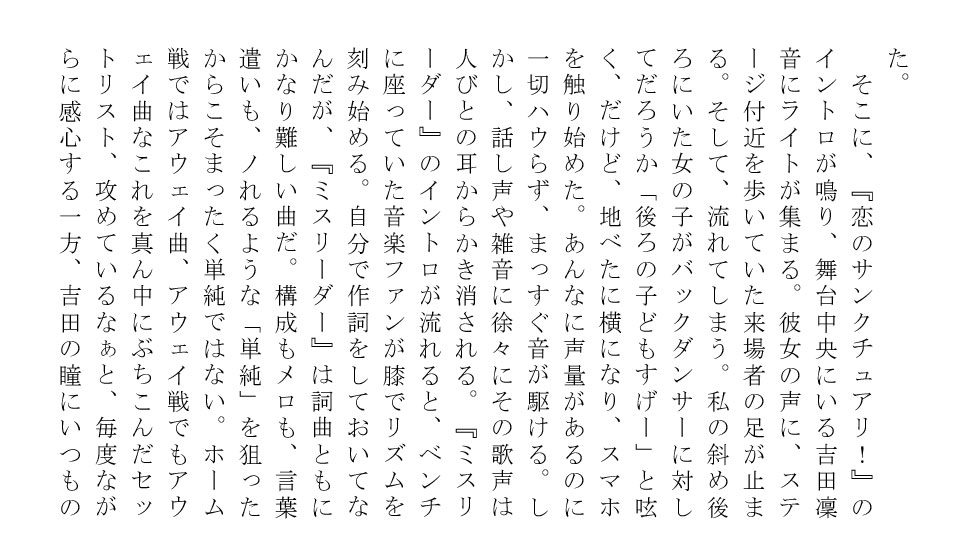 た。
　そこに、『恋のサンクチュアリ！』の
イントロが鳴り、舞台中央にいる吉田凜
音にライトが集まる。彼女の声に、ステ
ージ付近を歩いていた来場者の足が止ま
る。そして、流れてしまう。私の斜め後
ろにいた女の子がバックダンサーに対し
てだろうか「後ろの子どもすげー」と呟
く、だけど、地べたに横になり、スマホ
を触り始めた。あんなに声量があるのに
一切ハウらず、まっすぐ音が駆ける。し
かし、話し声や雑音に徐々にその歌声は
人びとの耳からかき消される。『ミスリ
ーダー』のイントロが流れると、ベンチ
に座っていた音楽ファンが膝でリズムを
刻み始める。自分で作詞をしておいてな
んだが、『ミスリーダー』は詞曲ともに
かなり難しい曲だ。構成もメロも、言葉
遣いも、ノれるような「単純」を狙った
からこそまったく単純ではない。ホーム
戦ではアウェイ曲、アウェイ戦でもアウ
ェイ曲なこれを真ん中にぶちこんだセッ
トリスト、攻めているなぁと、毎度なが
らに感心する一方、吉田の瞳にいつもの